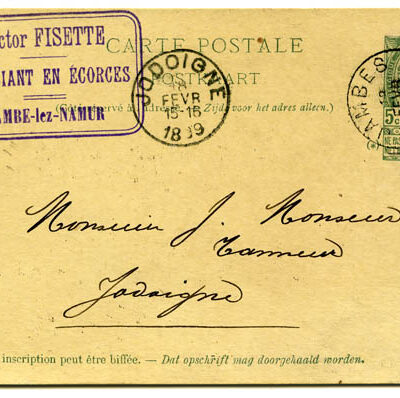 ctor FISETTE
IANT EN ÉCORCES
AMBE-lez-NAMUR
CARTE POSTALE
POSTKAART
(Côté réservé à l'adresse. Zijde voor het adres alleen.)
JODOIGNE
FEVR
15-16
1899
JAMBES
5c
Monsieur J. Monseur
Tanneur
Jodoigne
inscription peut être biffée. — Dat opschrift mag doorgehaald worden.